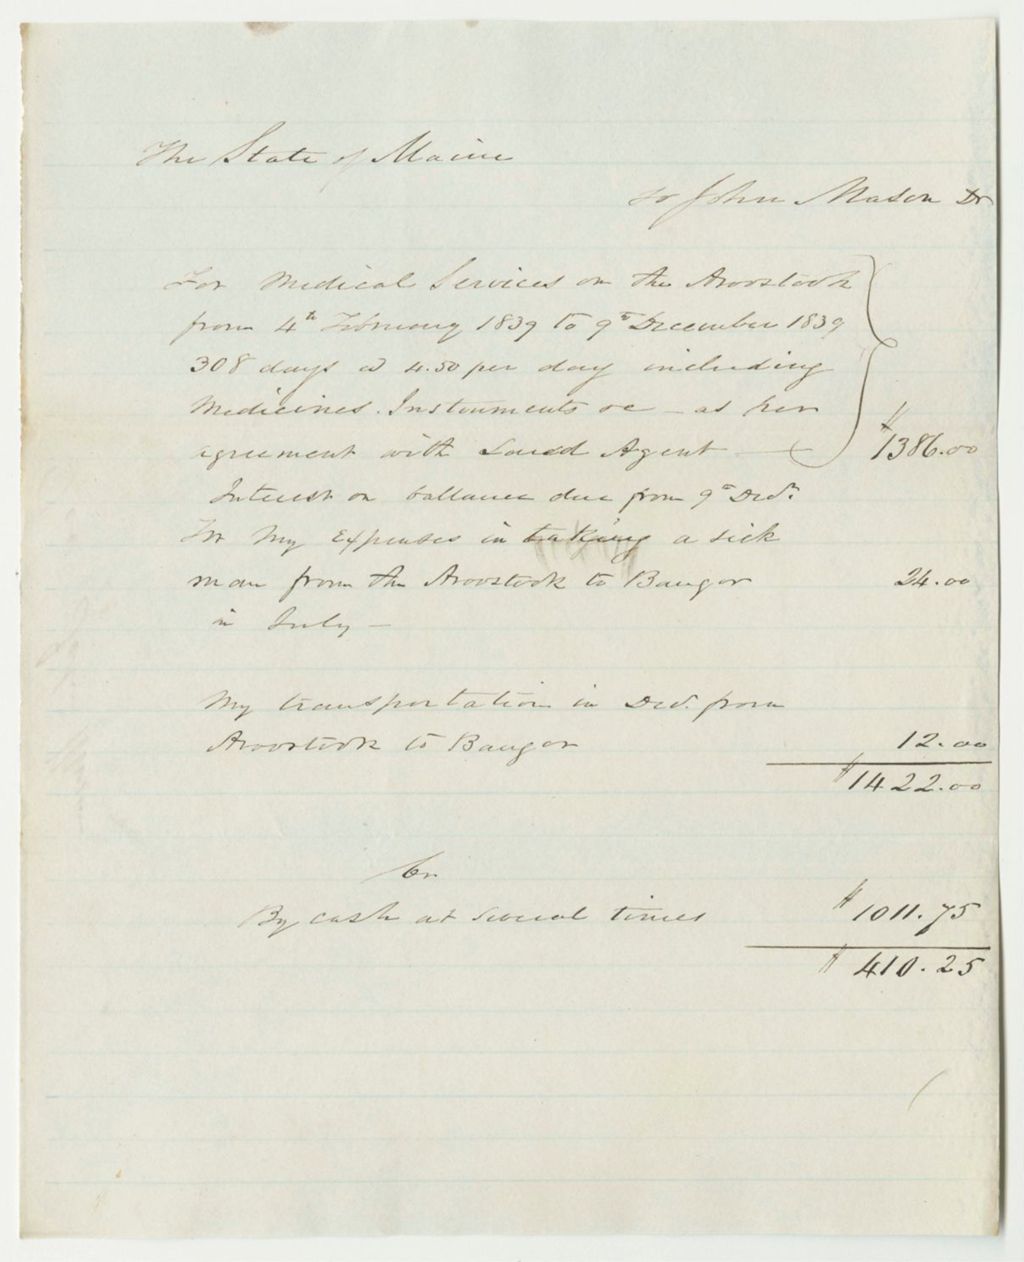 The State of Maine
to John Mason Dr
For Medical Services on the Aroostook
from 4th February 1839 to 9th December 1839
308 days @ 4.50 per day including
Medicines. Instruments &c - as per
agreement with Land Agent —
$1386.00
Interest on ballance due from 9th Decr.
For My Expenses in taking a sick
man from the Aroostook to Bangor
24.00
in July —
My transportation in Dec. from
Aroostook to Bangor
12.00
$1422.00
Cr
By cash at several times
$1011.75
$410.25